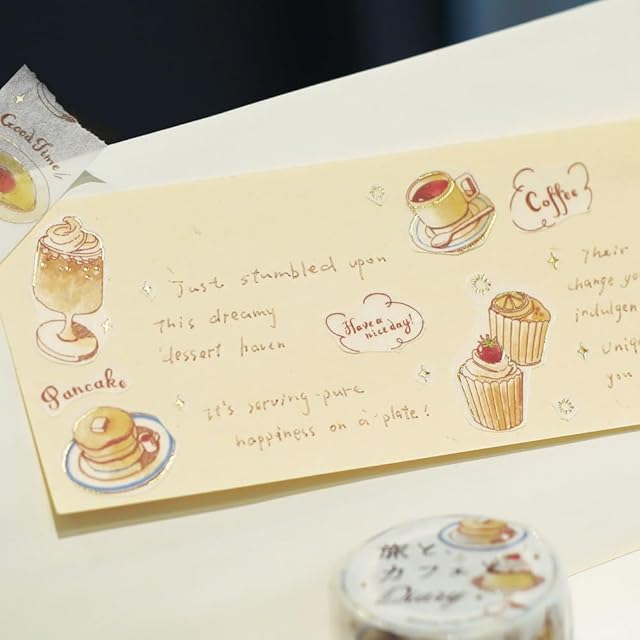 Good Time
Coffee
Just stumbled upon
this dreamy
dessert haven
Have a
nice day!
Pancake
It's serving pure
happiness on a plate!
Their
change yo
indulgen
Uniq
you
旅と
カフェと
Diary